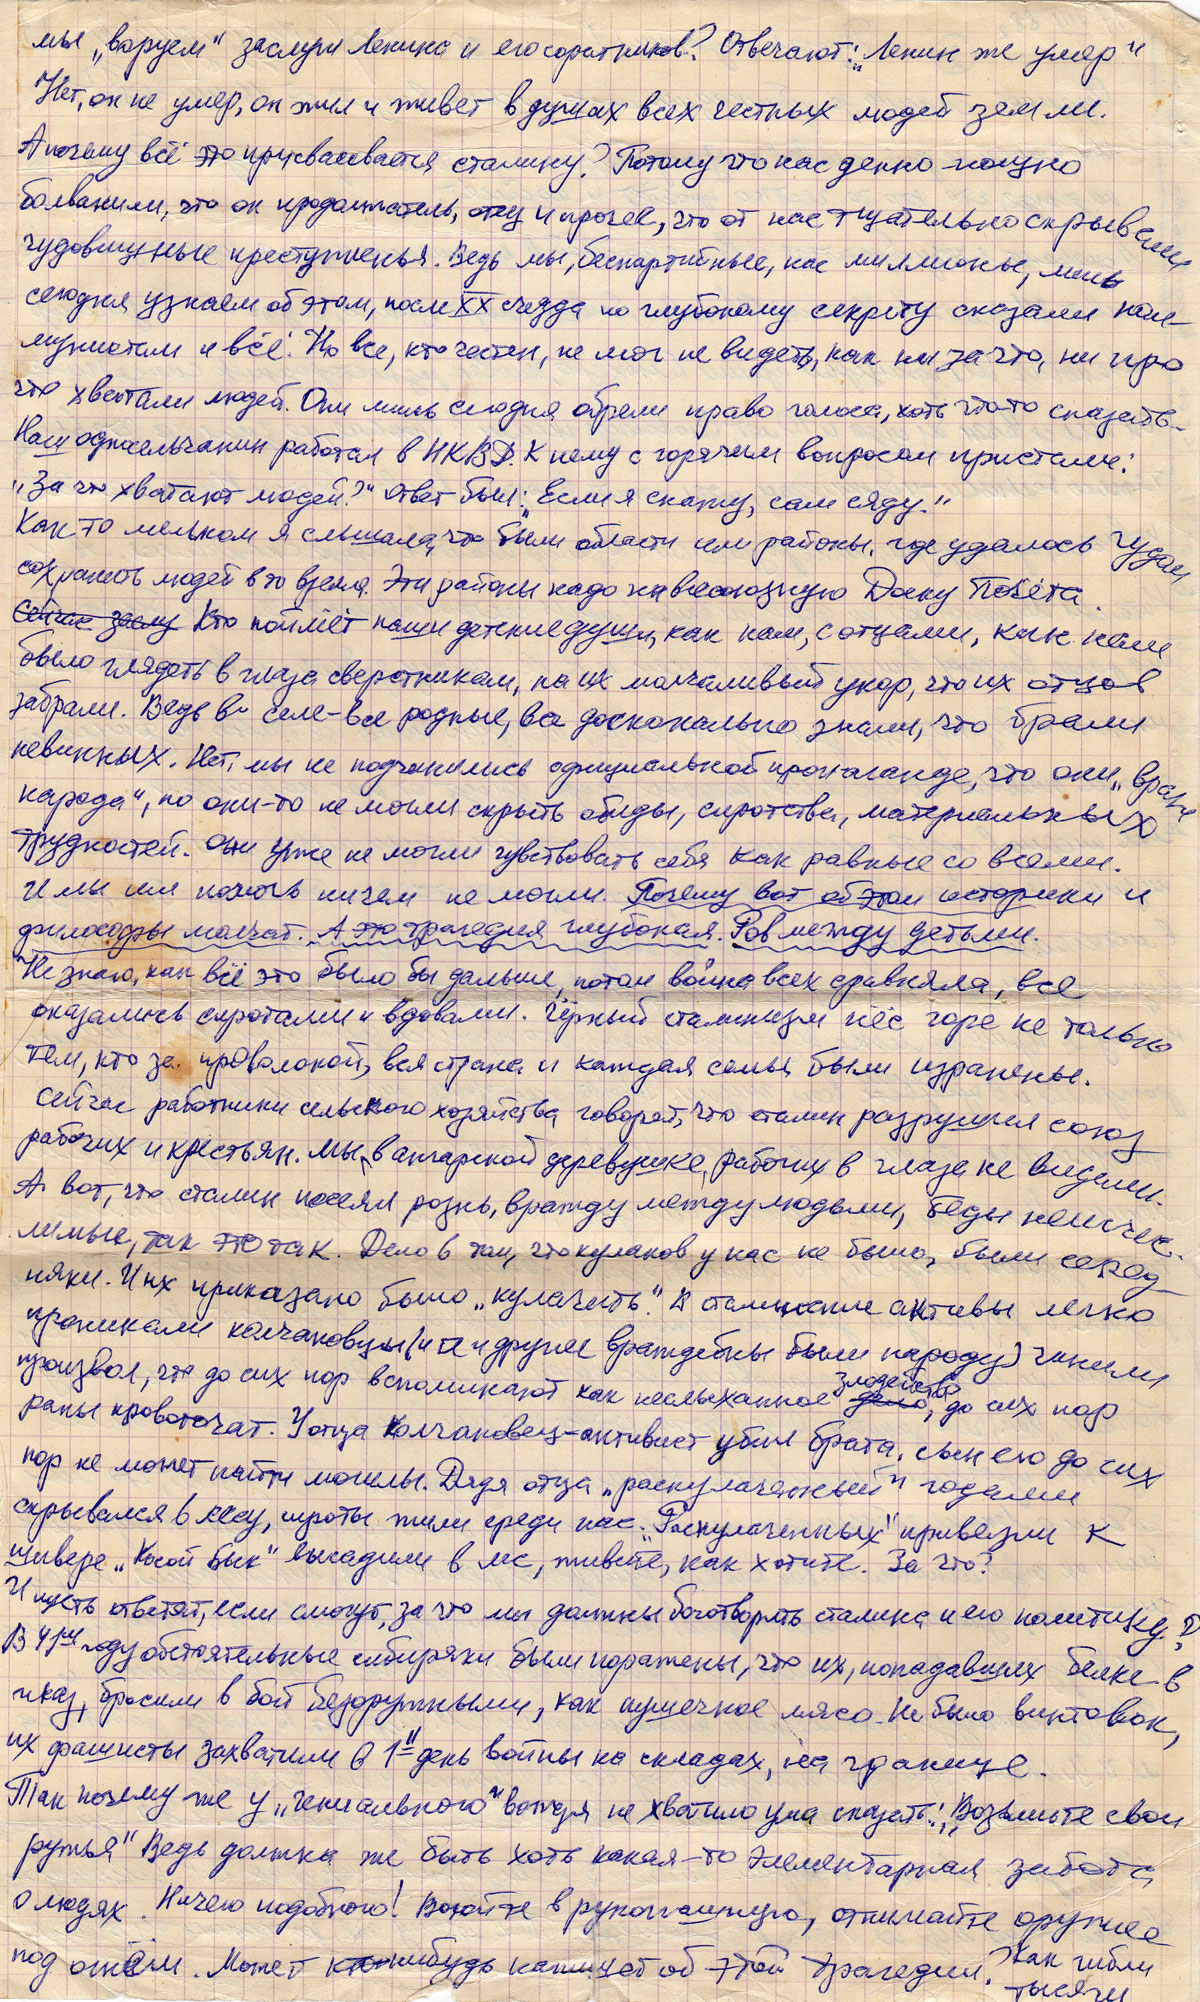 мы „воруем“ заслуги Ленина и его соратников? Отвечают: „Ленин же умер“
Нет, он не умер, он жил и живет в душах всех честных людей земли.
А почему всё это присваивается сталину? Потому что нас денно-нощно
болванили, что он продолжатель, отец и прочее, что от нас тщательно скрывали
чудовищные преступленья. Ведь мы, беспартийные, нас миллионы, лишь
сегодня узнаем об этом, после XX съезда по глубокому секрету сказали ком-
мунистам и всё. Но все, кто честен, не мог не видеть, как ни за что, ни про
что хватали людей. Они лишь сегодня обрели право голоса, хоть что-то сказать.
Наш односельчанин работал в НКВД. К нему с горячим вопросом пристали:
„За что хватают людей?“ Ответ был: „Если я скажу, сам сяду.“
Как то мельком я слышала, что были области или районы, где удалось чудом
сохранить людей в то время. Эти районы надо на всесоюзную Доску Почёта.
Сейчас заслу Кто поймёт наши детские души, как нам, с отцами, как нам
было глядеть в глаза сверстникам, на их молчаливый укор, что их отцов
забрали. Ведь в селе - все родные, все досконально знали, что брали
невинных. Нет, мы не подчинились официальной пропаганде, что они „враги
народа“, но они-то не могли скрыть обиды, сиротства, материальных
трудностей. Они уже не могли чувствовать себя как равные со всеми.
И мы им помочь ничем не могли. Почему вот об этом историки и
философы молчат. А это трагедия глубокая. Ров между детьми.
Не знаю, как всё это было бы дальше, потом война всех сравняла, все
оказались сиротами и вдовами. Чёрный сталинизм нёс горе не только
тем, кто за проволокой, вся страна и каждая семья были изранены.
Сейчас работники сельского хозяйства говорят, что сталин разрушил союз
рабочих и крестьян. Мы, в ангарской деревушке, рабочих в глаза не видели.
А вот, что сталин посеял рознь, вражду между людьми, беды неисчис-
лимые, так это так. Дело в том, что кулаков у нас не было, были серед-
няки. И их приказано было „кулачить“. В сталинские активы легко
проникали колчаковцы (и те и другие враждебны были народу) чинили
произвол, что до сих пор вспоминают как неслыханное дело злодейство, до сих пор
раны кровоточат. У отца колчаковец-активист убил брата, сын его до сих
пор не может найти могилы. Дядя отца „раскулаченный“ годами
скрывался в лесу, сироты жили среди нас. „Раскулаченных“ привезли к
шивере „Косой Бык“ высадили в лес, живите, как хотите. За что?
И пусть ответят, если смогут, за что мы должны боготворить сталина и его политику?
В 41ом году обстоятельные сибиряки были поражены, что их, попадавших белке в
глаз, бросили в бой безоружными, как пушечное мясо. Не было винтовок,
их фашисты захватили в 1й день войны на складах, на границе.
Так почему же у „гениального“ вождя не хватило ума сказать: „Возьмите свои
ружья“ Ведь должна же быть хоть какая-то элементарная забота
о людях. Ничего подобного! Воюйте в рукопашную, отнимайте оружие
под огнём. Может кто-нибудь напишет об этой трагедии? Как гибли
тысячи